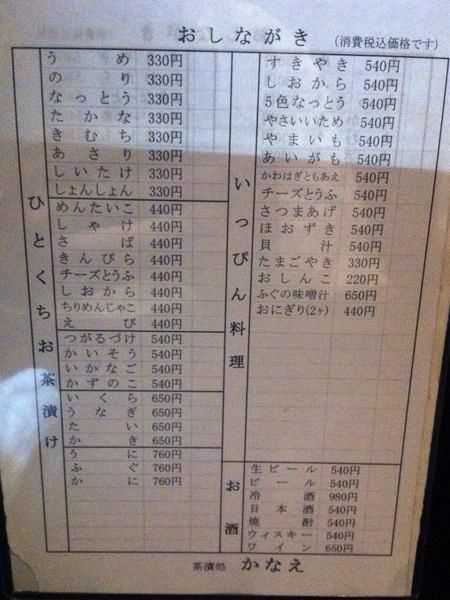 おしながき (消費税込価格です)
ひとくちお茶漬け
うめ 330円
のり 330円
なっとう 330円
たかな 330円
きむち 330円
あさり 330円
しいたけ 330円
しょんしょん 330円
めんたいこ 440円
しゃけ 440円
さば 440円
きんぴら 440円
チーズとうふ 440円
しおから 440円
ちりめんじゃこ 440円
えび 440円
つがるづけ 540円
かいそう 540円
いかなご 540円
かずのこ 540円
いくら 650円
うなぎ 650円
たい 650円
かき 650円
うに 760円
ふぐ 760円
かに 760円
いっぴん料理
すきやき 540円
しおから 540円
5色なっとう 540円
やさいいため 540円
やまいも 540円
あいがも 540円
かわはぎともあえ 540円
チーズとうふ 540円
さつまあげ 540円
ほおずき 540円
貝汁 540円
たまごやき 330円
おしんこ 220円
ふぐの味噌汁 650円
おにぎり(2ヶ) 440円
お酒
生ビール 540円
ビール 540円
冷酒 980円
日本酒 540円
焼酎 540円
ウィスキー 540円
ワイン 650円
茶漬処 かなえ